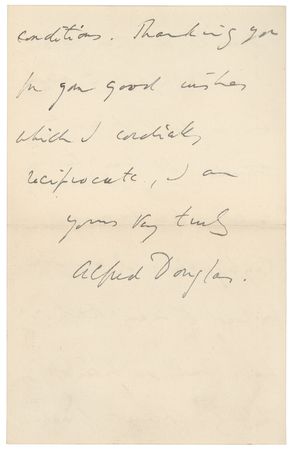 conditions. Thanking you
for your good wishes
which I cordially
reciprocate, I am
yours very truly
Alfred Douglas.